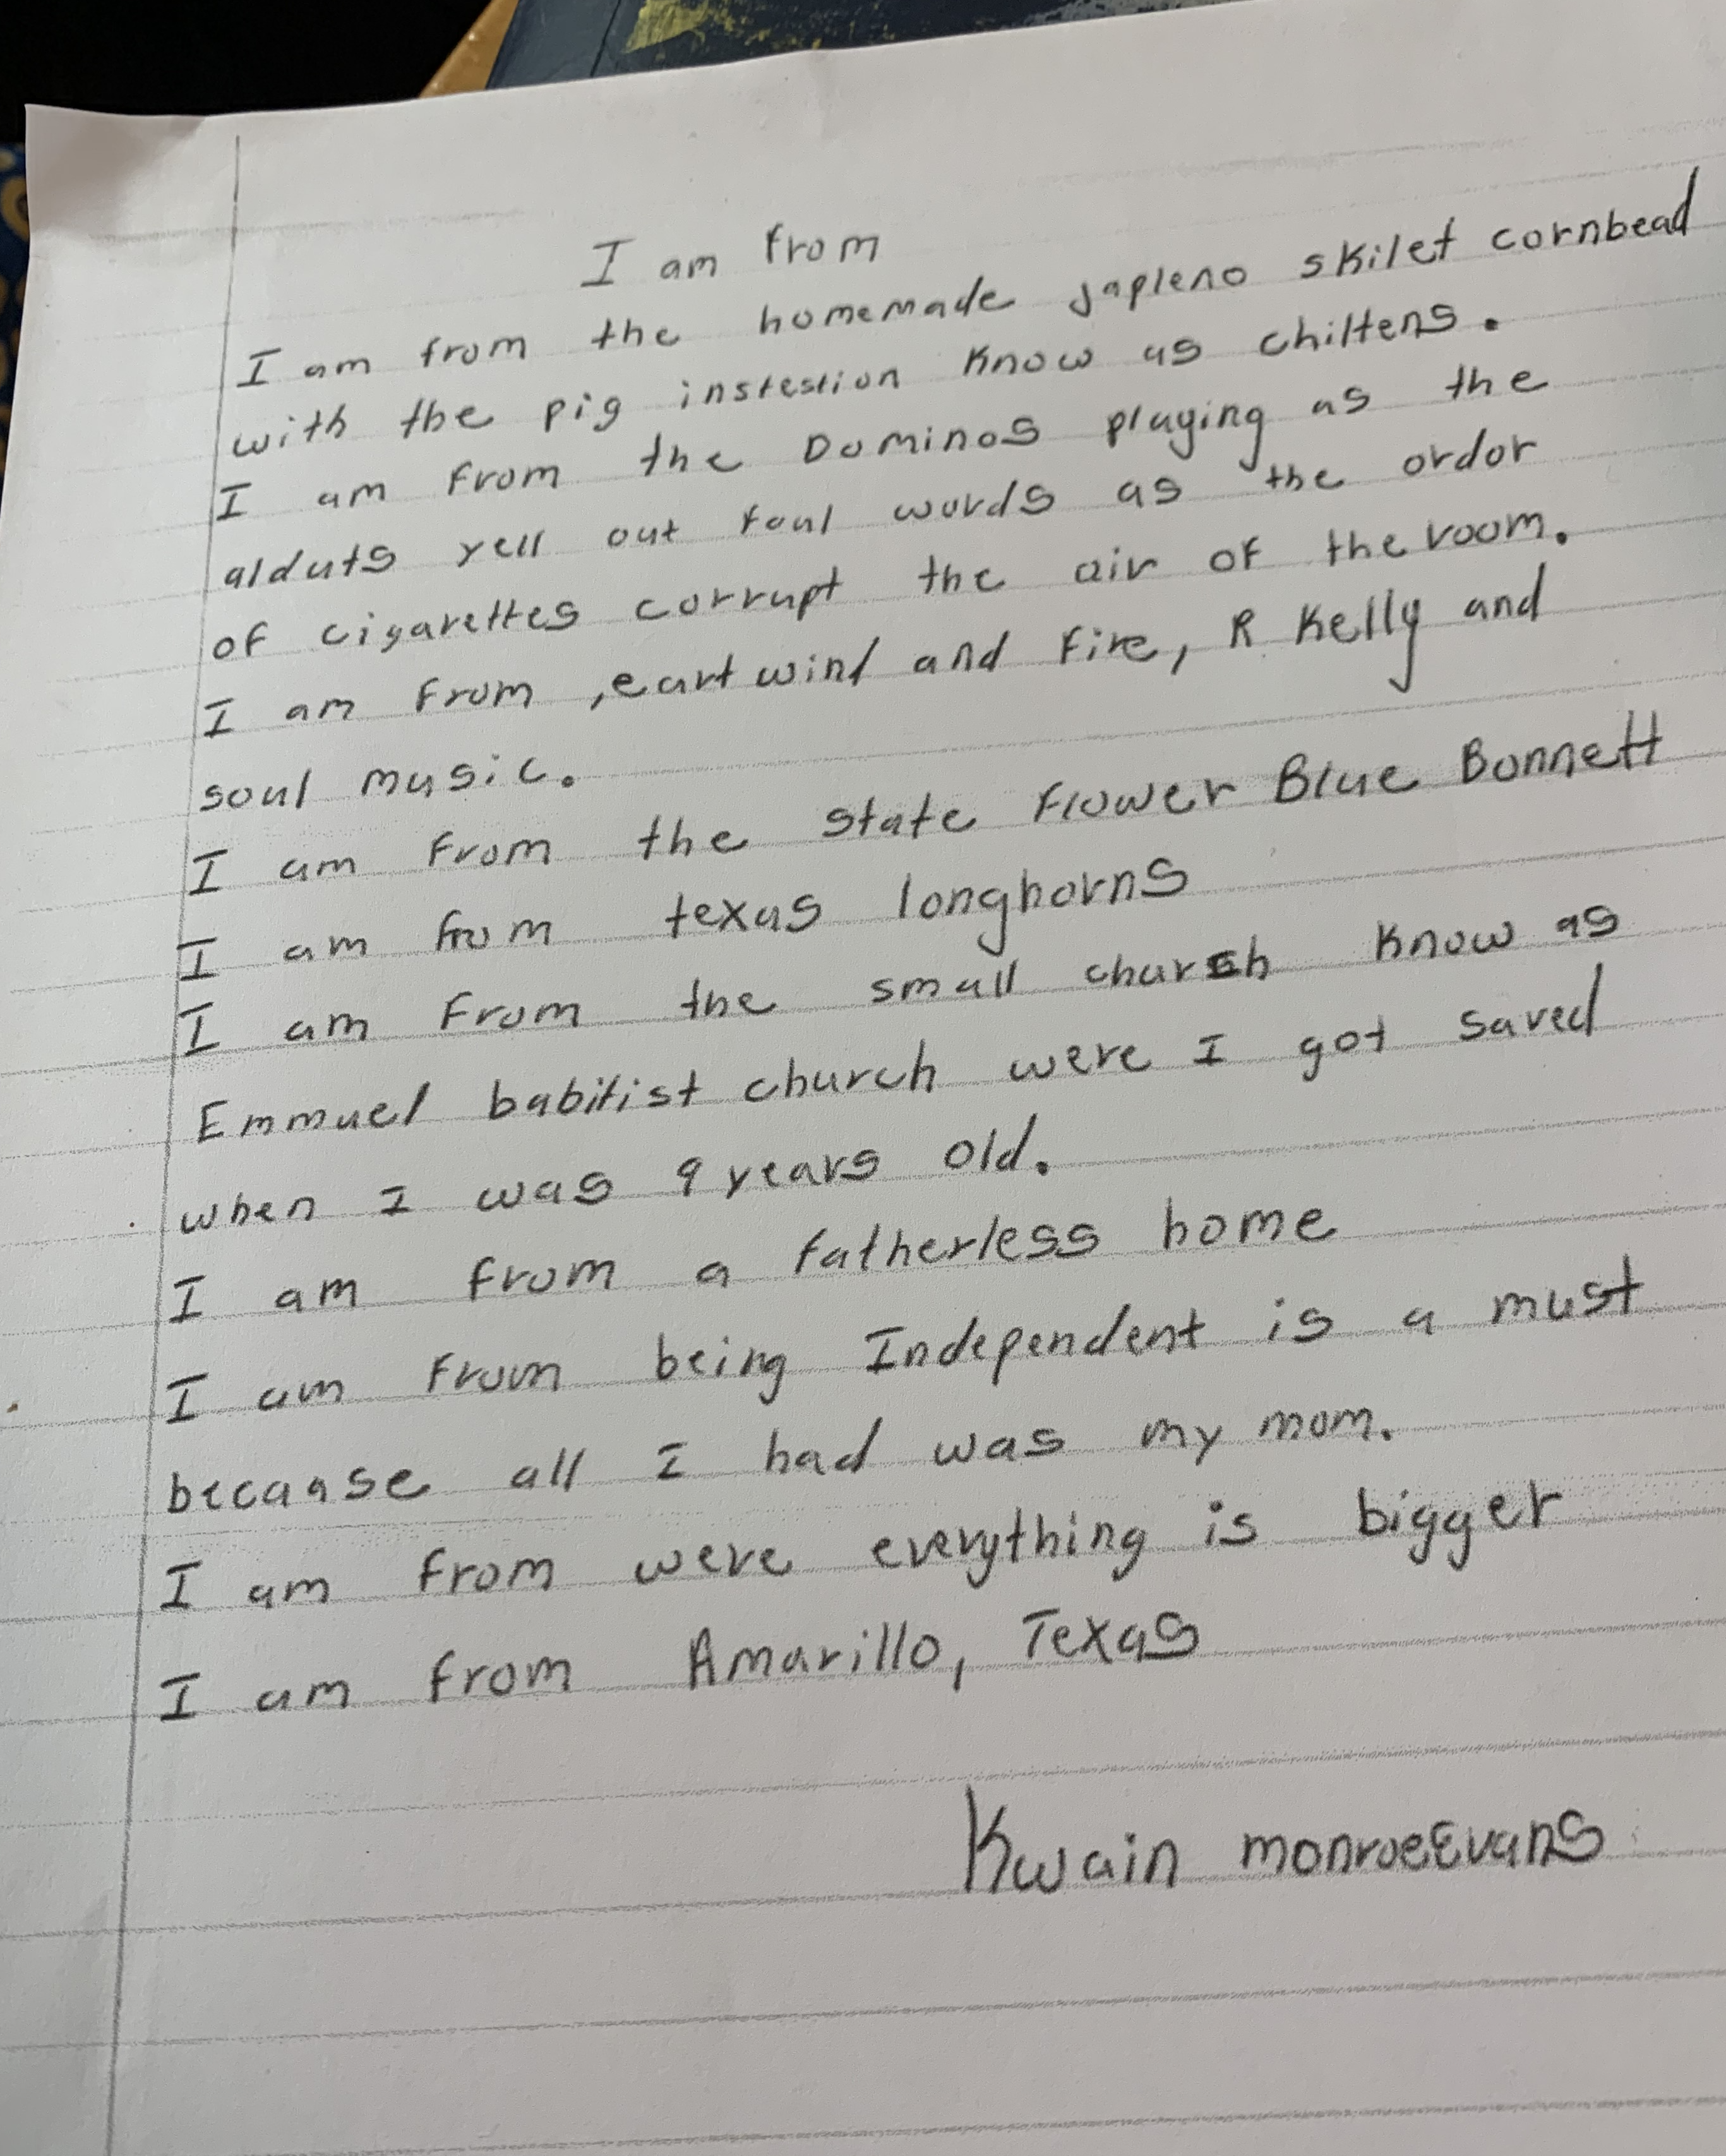 I am from
I am from the homemade japleno skilet cornbead
with the pig instestion know as chiltens.
I am from the Dominos playing as the
alduts yell out foul words as the ordor
of cigarettes corrupt the air of the room.
I am from ,eart wind and fire, R Kelly and
soul music.
I am from the state flower Blue Bonnett
I am from texas longhorns
I am from the small church know as
Emmuel babitist church were I got saved
when I was 9 years old.
I am from a fatherless home
I am from being Independent is a must
because all I had was my mom.
I am from were everything is bigger
I am from Amarillo, Texas
Kwain monroeEvans